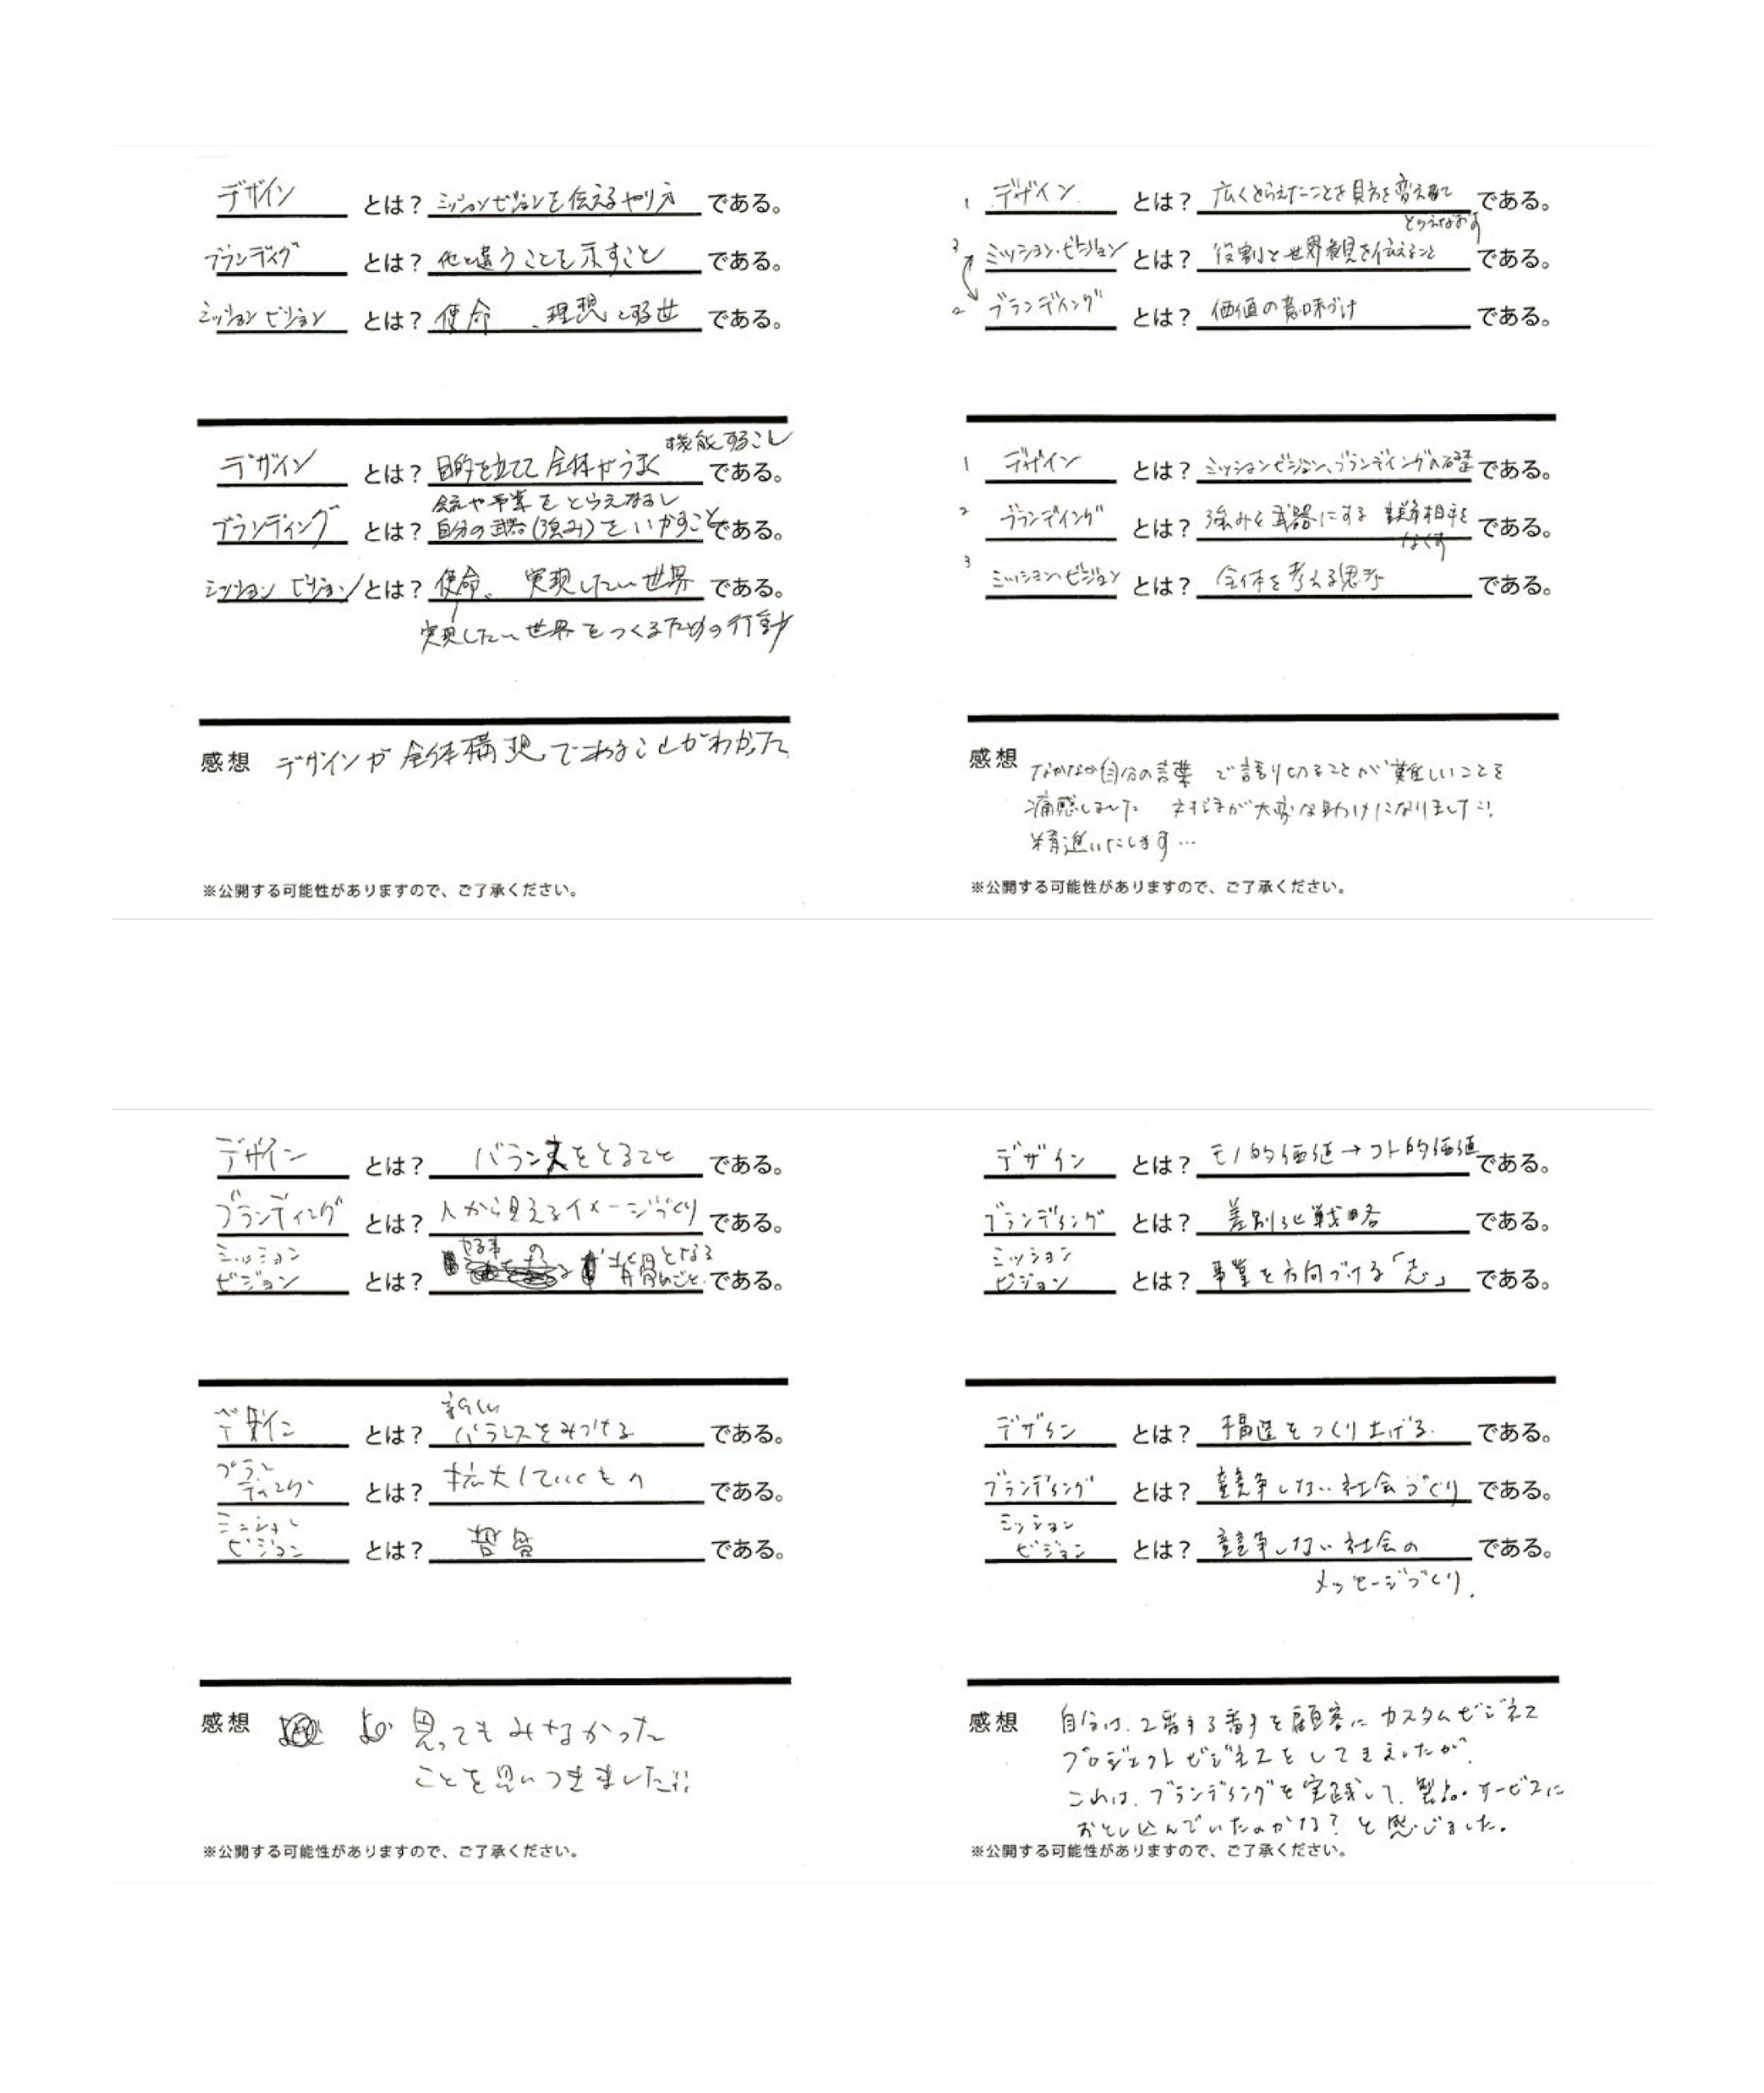 デザイン とは？ ミッションビジョンを伝えるやり方 である。
ブランディグ とは？ 他と違うことを示すこと である。
ミッション ビジョン とは？ 使命 、理想とする世 である。
機能すること
デザイン とは？ 目的を立てて全体がうまく である。
会社や事業をとらえなおし
ブランディング とは？ 自分の武器(強み)をいかすこと である。
ミッション ビジョン とは？ 使命、実現したい世界 である。
実現したい世界をつくるための行動
感想 デザインが全体構想であることがわかった
※公開する可能性がありますので、ご了承ください。
1 デザイン とは？ 広くとらえたことを見方を変えて である。
とらえなおす
3 ミッション・ビジョン とは？ 役割と世界観を伝えること である。
2 ブランディング とは？ 価値の意味づけ である。
1 デザイン とは？ ミッションビジョン、ブランディングの礎 である。
2 ブランディング とは？ 強みを武器にする 競争相手を である。
なくす
3 ミッション・ビジョン とは？ 全体を考える思考 である。
感想 なかなか自分の言葉で語り切ることが難しいことを
痛感しました が大変な助けになりました!!
精進いたします…
※公開する可能性がありますので、ご了承ください。
デザイン とは？ バランスをとること である。
ブランディング とは？ 人から見えるイメージづくり である。
ミッション
ビジョン とは？ やる事の 背骨となる である。
新しい
デザイン とは？ バランスをみつける である。
ブラン
ディング とは？ 拡大していくもの である。
ミッション
ビジョン とは？ 背骨 である。
感想 思ってもみなかった
ことを思いつきました!!
※公開する可能性がありますので、ご了承ください。
デザイン とは？ モノ的価値→コト的価値 である。
ブランディング とは？ 差別化戦略 である。
ミッション
ビジョン とは？ 事業を方向づける「志」 である。
デザイン とは？ 構造をつくり上げる. である。
ブランディング とは？ 競争しない社会づくり である。
ミッション
ビジョン とは？ 競争しない社会の である。
メッセージづくり.
感想 自分は、2番手3番手を顧客にカスタムビジネス
プロジェクトビジネスをしてきましたが、
これは、ブランディングを実践して、製品・サービスに
おとし込んでいたのかな？と感じました。
※公開する可能性がありますので、ご了承ください。